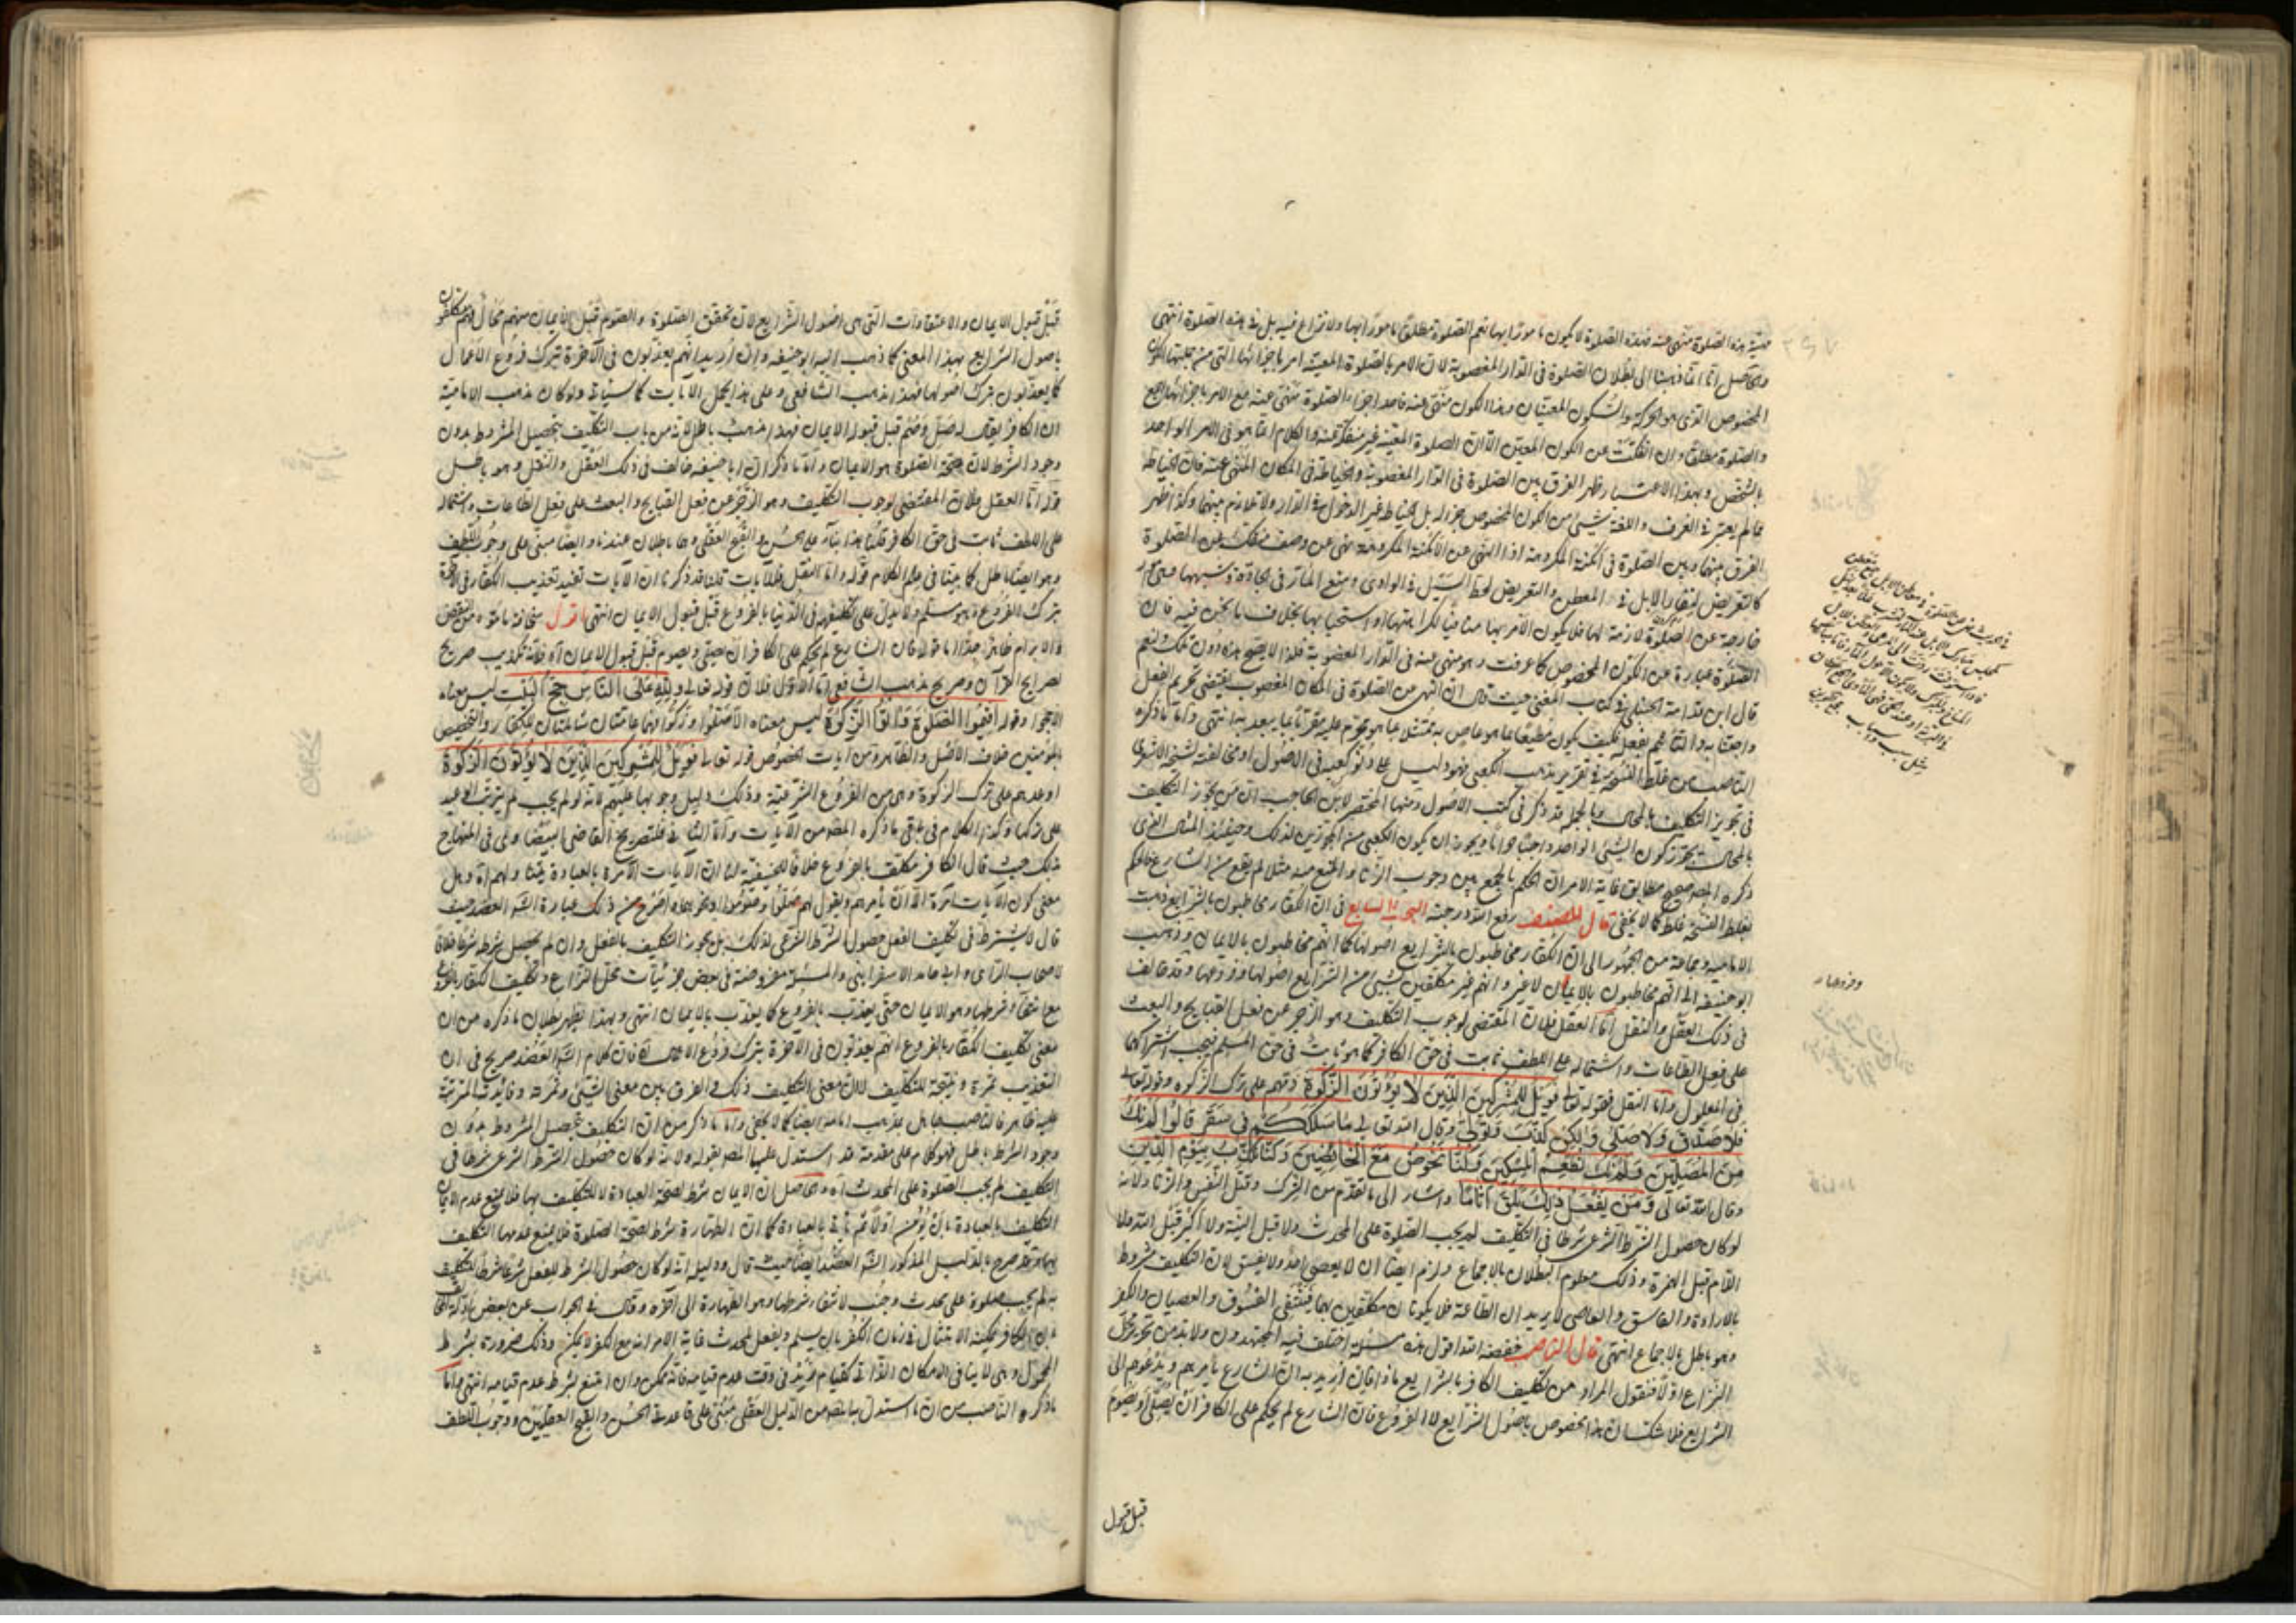 حيثية هذه الصلوة منهى عنه فهذه الصلوة لا يكون مامورا بها نعم الصلوة مطلقا مامورا بها ولا نزاع فيه بل في هذه الصلوة انتهى
والحاصل انا انما ذهبنا الى بطلان الصلوة في الدار المغصوبة لان الامر بالصلوة المعينة امر باجزائها التي من جملتها الكون
المخصوص الذى هو الحركة والسكون المعينان وهذا الكون منهى عنه فاحد اجزاء الصلوة منهى عنه مع الامر باجزائها جميع
والصلوة مطلقا وان انفكت عن الكون المعين الا ان الصلوة المعينة غير منفكة عنه والكلام انما هو في الامر الواحد
بالشخص وبهذا الاعتبار ظهر الفرق بين الصلوة في الدار المغصوبة والخياطة في المكان المنهى عنه فان الخياطة
مما لم يعتبر في العرف واللغة شيئ من الكون المخصوص جزء له بل الخياط غير الدخول في الدار ولا تلازم بينهما وكذا ظهر
الفرق بينها وبين الصلوة في الامكنة المكروهة اذ النهى عن الامكنة المكروهة نهى عن وصف منفك عن الصلوة
كالتعرض لنفار الابل في المعطن والتعرض لخط السيل في الوادى ومنع المار في الجادة وشبهها فهى امور
خارجة عن الصلوة لازمة لها فلا يكون الامر بها منافيا لكراهتها او استحبابها بخلاف ما نحن فيه فان
الصلوة عبارة عن الكون المخصوص كما عرفت وهو منهى عنه في الدار المغصوبة فلذا لا يصح هذه دون تلك ولنعم
قال ابن قدامة الحنبلى في كتاب المغنى حيث قال ان النهى عن الصلوة في المكان المغصوب يقتضى تحريم الفعل
واجتنابه والتاثيم بفعله فكيف يكون مطيعا بما هو عاص به ممتثلا بما هو محرم عليه متقربا بما يبعد به انتهى واما ما ذكره
الناصب من غلط النسخة في تقرير مذهب الكعبى فهو دليل على دنو كعبه في الاصول او مخالفته لشيخه الاشعرى
في تجويز التكليف بالمحال وبالجملة قد ذكر في كتب الاصول ومنها المختصر لابن الحاجب ان من يجوز التكليف
بالمحال يجوز كون الشيئ الواحد واجبا حراما ويجوز ان يكون الكعبى من المجوزين لذلك وحينئذ المثال الذى
ذكره المصنف صحيح مطابق غاية الامر ان الحكم بالجمع بين وجوب الزنا والمنع منه مثلا لم يقع من الشارع فالحكم
بغلط النسخة غلط كما لا يخفى قال المصنف رفع الله درجته البحث السابع في ان الكفار مخاطبون بالشرايع ذهبت
الامامية وجماعة من الجمهور الى ان الكفار مخاطبون بالشرايع اصولها كما انهم مخاطبون بالايمان وذهب
ابو حنيفة الى انهم مخاطبون بالايمان لا غير وانهم غير مكلفين بشيئ من الشرايع اصولها وفروعها وقد خالف
في ذلك العقل والنقل اما العقل فلان المقتضى لوجوب التكليف وهو الزجر عن فعل القبايح والبعث
على فعل الطاعات واشتماله على اللطف ثابت في حق الكافر كما هو ثابت في حق المسلم فيجب اشتراكهما
في المعلول واما النقل فقوله تعالى فويل للمشركين الذين لا يؤتون الزكوة ذمهم على ترك الزكوة وقوله تعالى
فلا صدق ولا صلى ولكن كذب وتولى وقال الله تعالى ما سلككم في سقر قالوا لم نك
من المصلين ولم نك نطعم المسكين وكنا نخوض مع الخائضين وكنا نكذب بيوم الدين
وقال الله تعالى ومن يفعل ذلك يلق اثاما واشار الى ما تقدم من الشرك وقتل النفس والزنا ولانه
لو كان حصول الشرط الشرعى شرطا في التكليف لم يجب الصلوة على المحدث ولا قبل النية ولا اكبر قبل الله ولا
اللام قبل الهمزة وذلك معلوم البطلان بالاجماع ولزم ايضا ان لا يعصى احد ولا يفسق لان التكليف مشروط
بالارادة والفاسق والعاصى لا يريدان الطاعة فلا يكونان مكلفين بها فينتفى الفسوق والعصيان والكفر
وهو باطل بالاجماع انتهى قال الناصب خفضه الله اقول هذه مسئلة اختلف فيه المجتهدون ولا بد من تحرير محل
النزاع اولا فنقول المراد من تكليف الكافر بالشرايع ماذا فان اريد به ان الشارع يأمرهم ويدعوهم الى
الشرايع فلا شك ان هذا مخصوص باصول الشرايع لا الفروع فان الشارع لم يحكم على الكافر ان يصلى او يصوم
قبل قبول
قبل قبول الايمان والاعتقادات التى هى اصول الشرايع لان تحقق الصلوة والصوم قبل الايمان منهم محال فهم مكلفون
باصول الشرايع بهذا المعنى كما ذهب اليه ابو حنيفة وان اريد انهم يعذبون في الآخرة بترك فروع الاعمال
كما يعذبون بترك اصولها فهذا مذهب الشافعى وعلى هذا يحمل الآيات كما سيأتى ولو كان مذهب الامامية
ان الكافر يقال له صل وصم قبل قبوله الايمان فهذا مذهب باطل لانه من باب التكليف بتحصيل المشروط بدون
وجود الشرط لان صحة الصلوة هو الايمان واما ما ذكر ان ابا حنيفة خالف في ذلك العقل والنقل وهو باطل
قوله اما العقل فلان المقتضى لوجوب التكليف وهو الزجر عن فعل القبايح والبعث على فعل الطاعات واشتماله
على اللطف ثابت في حق الكافر قلنا هذا بناء على الحسن والقبح العقلى وهما باطلان عندنا وايضا مبنى على وجوب اللطف
وهو ايضا باطل كما بينا في علم الكلام قوله واما النقل فلآيات قلنا قد ذكرنا ان الآيات تفيد تعذيب الكفار في الآخرة
بترك الفروع وهو مسلم ولا يدل على تكليفهم في الدنيا بالفروع قبل قبول الايمان انتهى واقول سخافة ما موه من النقض
والابرام ظاهر جدا اما قوله فان الشارع لم يحكم على الكافر ان يصلى ويصوم قبل قبول الايمان آه فلانه تكذيب صريح
لصرايح القرآن وصريح مذهب الشافعى اما الاول فلان قوله تعالى ولله على الناس حج البيت ليس معناه
الا حجوا وقوله اقيموا الصلوة وآتوا الزكوة ليس معناه الا صلوا وزكوا وهما عامتان شاملتان للكفار والتخصيص
بالمؤمنين خلاف الاصل والظاهر ومن آيات الخصوص قوله تعالى فويل للمشركين الذين لا يؤتون الزكوة
اوعدهم على ترك الزكوة وهى من الفروع الشرعية وذلك دليل وجوبها عليهم لانه لو لم يجب لم يترتب الوعيد
على تركها وكذا الكلام في باقى ما ذكره المصنف من الآيات واما الثانى فلتصريح القاضى البيضاوى في المنهاج
بذلك حيث قال الكافر مكلف بالفروع خلافا للحنفية لنا ان الآيات الآمرة بالعبادة يتناولهم آه وهل
معنى كون الآيات آمرة الا ان يأمرهم ويقول لهم صلوا وصوموا ونحوهما واصرح من ذلك عبارة الشارح العضد حيث
قال لا يشترط في تكليف الفعل حصول الشرط الشرعى لذلك بل يجوز التكليف بالفعل وان لم يحصل شرطه شرعا خلافا
لاصحاب الراى وابى حامد الاسفراينى والمسئلة مفروضة في بعض جزئيات محل النزاع وتكليف الكفار بالفروع
مع انتفاء شرطها وهو الايمان حتى يعذب بالفروع كما يعذب بالايمان انتهى وبهذا يظهر بطلان ما ذكره من ان
معنى تكليف الكفار بالفروع انهم يعذبون في الآخرة بترك فروع الاعمال آه فان كلام الشارح العضد صريح في ان
التعذيب ثمرة ونتيجة للتكليف لا ان معنى التكليف ذلك والفرق بين معنى الشيئ وثمرته وفائدته المترتبة
عليه ظاهر فالناصب جاهل بمذهب امامه ايضا كما لا يخفى واما ما ذكر من ان التكليف بتحصيل المشروط بدون
وجود الشرط باطل فهو كلام على مقدمة قد استدل عليها المصنف بقوله ولانه لو كان حصول الشرط الشرعى شرطا في
التكليف لم يجب الصلوة على المحدث آه والحاصل ان الايمان شرط لصحة العبادة لا للتكليف بها فلا يمنع عدم الايمان
التكليف بالعبادة بان يؤمن اولا ثم يأتى بالعبادة كما ان الطهارة شرط لصحة الصلوة فلا يمنع عدمها التكليف
بها وقد صرح بالدليل المذكور الشارح العضد ايضا حيث قال ودليله انه لو كان حصول الشرط للفعل شرعا شرطا للتكليف
به لم يجب صلوة على محدث وجنب لانتفاء شرطها وهو الطهارة الى آخره وقال في الجواب عن بعض
بان الكافر يمكنه الامتثال في زمان الكفر بان يسلم ويفعل كالمحدث غاية الامر انه مع الكفر لا يمكن وذلك ضرورة بشرط
المحمول وهى لا ينافى الامكان الذاتى كقيام زيد في وقت عدم قيامه فانه ممكن وان امتنع بشرط عدم قيامه انتهى واما
ما ذكره الناصب من ان ما استدل به المصنف من الدليل العقلى مبنى على قاعدة الحسن والقبح العقليين ووجوب اللطف